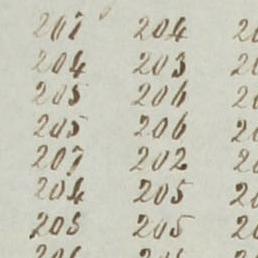 207 204 20
204 203 20
205 206 20
205 206 20
207 202 20
204 205 20
205 205 20
206 20